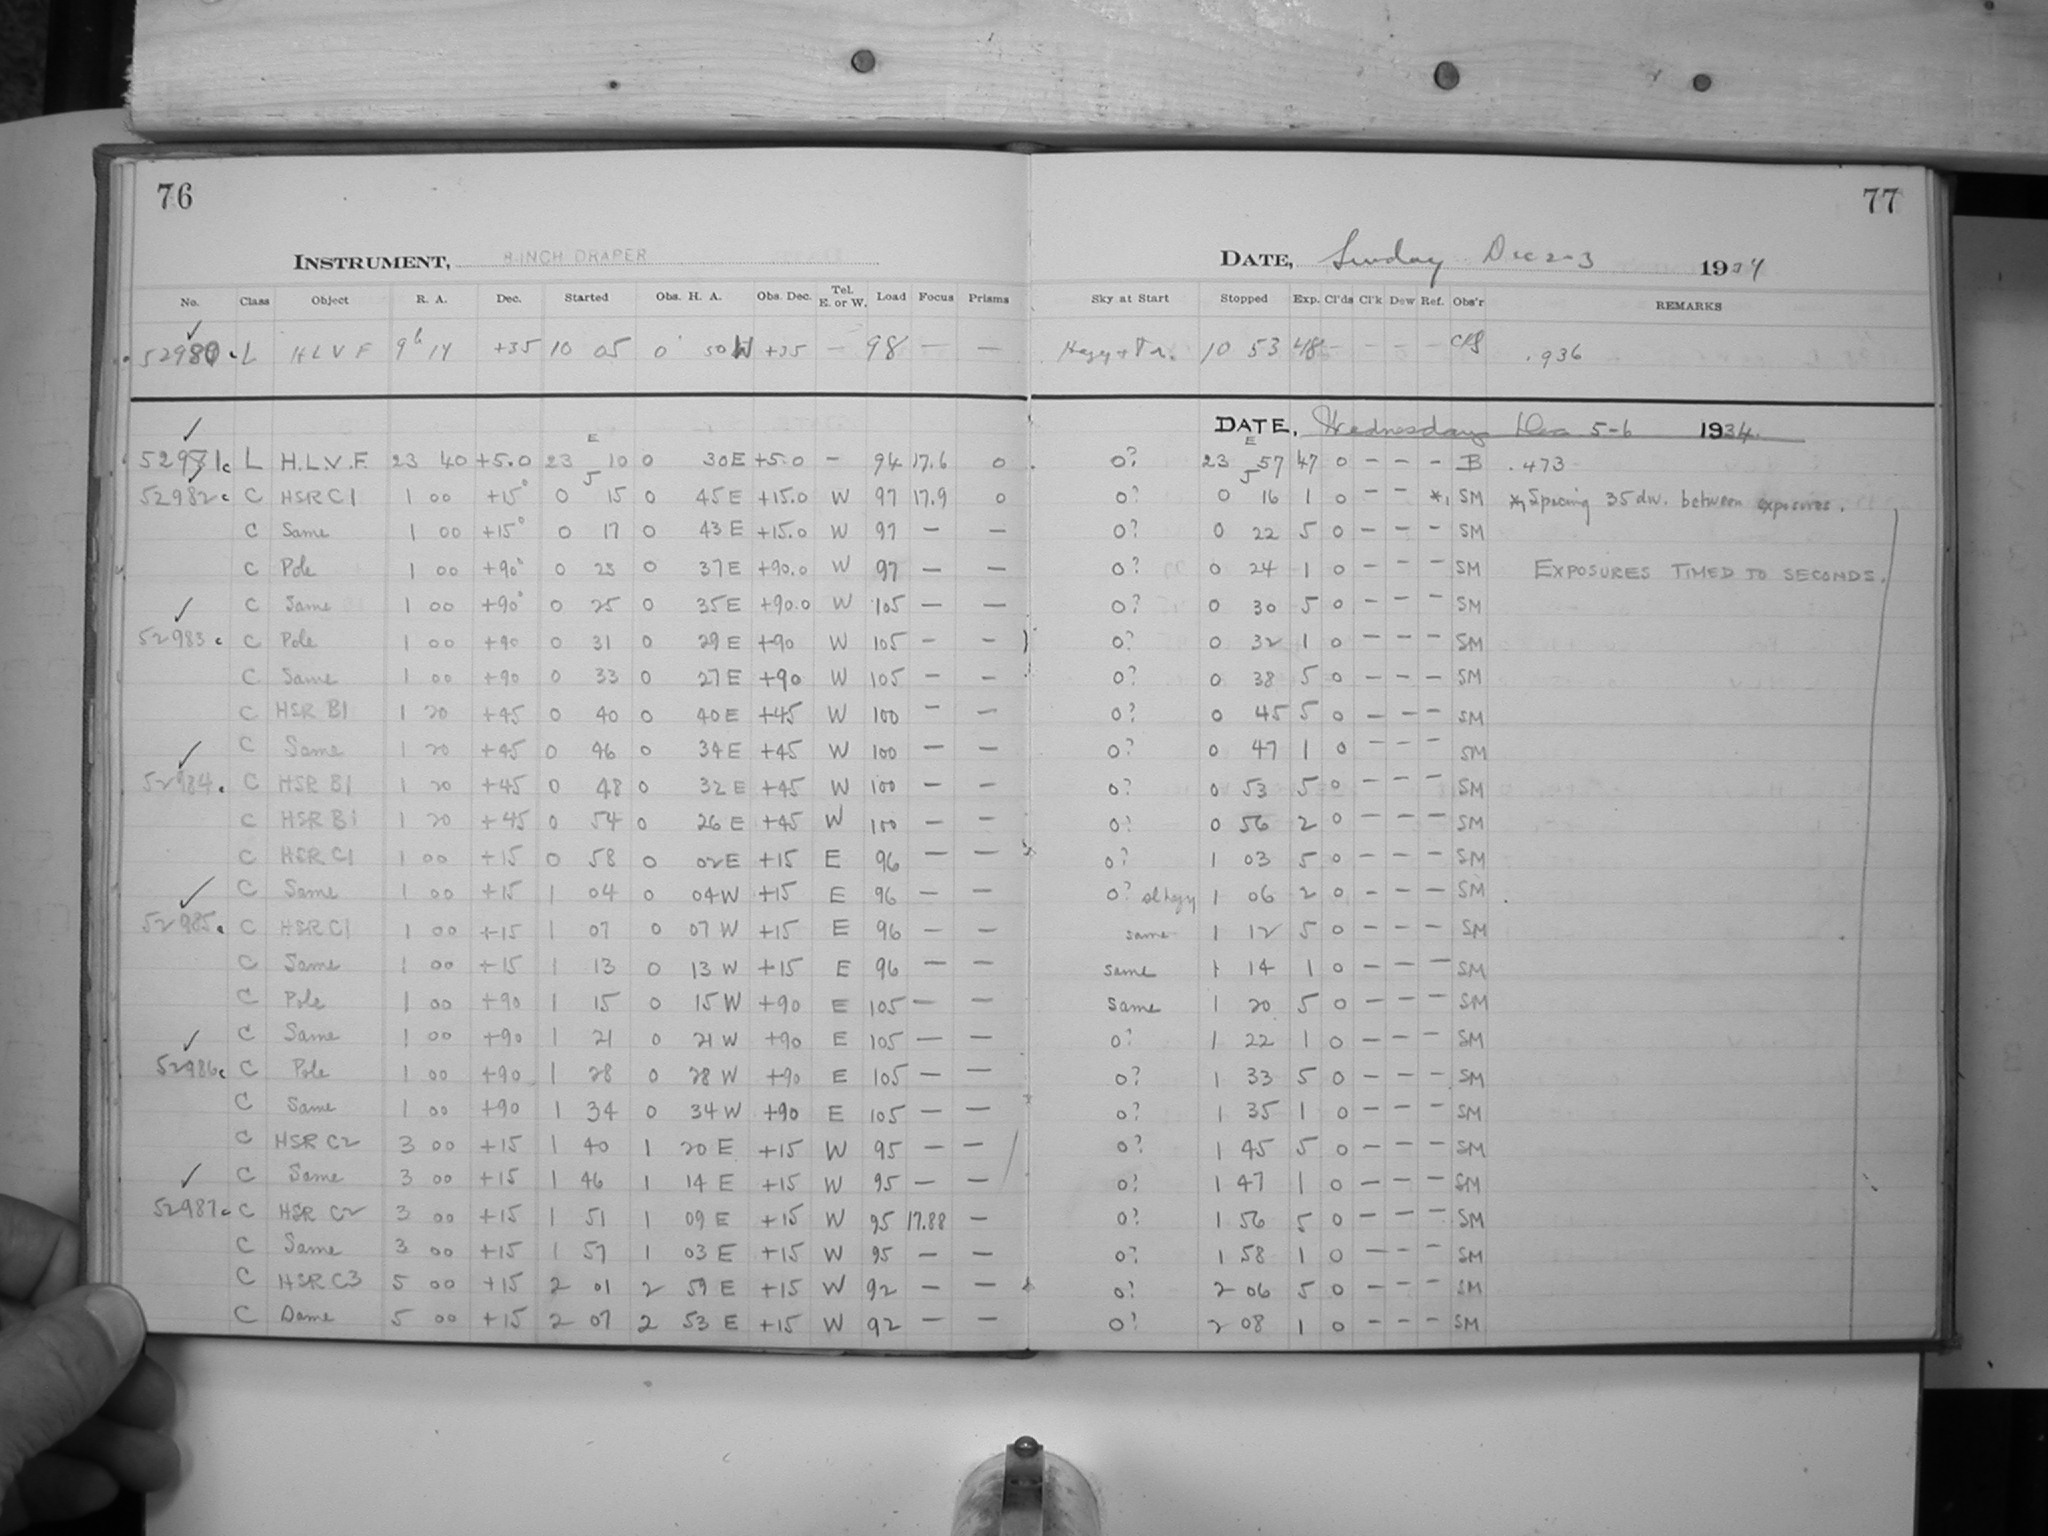 76
77
INSTRUMENT, 8-INCH DRAPER
DATE, Sunday Dec 2-3 1934
No. Class Object R. A. Dec. Started Obs. H. A. Obs. Dec. Tel. E. or W. Load Focus Prisms Sky at Start Stopped Exp. Cl'ds Cl'k Dew Ref. Obs'r REMARKS
52980 L HLVF 9h 14 +35 10 05 0 50 W +35 — 98 — — Hazy + Tr. 10 53 48 - - - - .936
DATE, Wednesday Dec 5-6 1934.
E E
52981c L H.L.V.F. 23 40 +5.0 23 10 0 30E +5.0 - 94 17.6 0 0? 23 57 47 0 - - - B .473
52982c C HSR C1 1 00 +15° 0 15 0 45 E +15.0 W 97 17.9 0 0? 0 16 1 0 - - *1 SM *1 Spacing 35 div. between exposures.
C Same 1 00 +15° 0 17 0 43 E +15.0 W 97 — — 0? 0 22 5 0 - - - SM
C Pole 1 00 +90° 0 23 0 37 E +90.0 W 97 — — 0? 0 24 1 0 - - - SM EXPOSURES TIMED TO SECONDS.
C Same 1 00 +90° 0 25 0 35 E +90.0 W 105 — — 0? 0 30 5 0 - - - SM
52983c C Pole 1 00 +90 0 31 0 29 E +90 W 105 — — 0? 0 32 1 0 - - - SM
C Same 1 00 +90 0 33 0 27 E +90 W 105 — — 0? 0 38 5 0 - - - SM
C HSR B1 1 20 +45 0 40 0 40 E +45 W 100 — — 0? 0 45 5 0 - - - SM
C Same 1 20 +45 0 46 0 34 E +45 W 100 — — 0? 0 47 1 0 - - - SM
52984c C HSR B1 1 20 +45 0 48 0 32 E +45 W 100 — — 0? 0 53 5 0 - - - SM
C HSR B1 1 20 +45 0 54 0 26 E +45 W 100 — — 0? 0 56 2 0 - - - SM
C HSR C1 1 00 +15 0 58 0 02 E +15 E 96 — — 0? 1 03 5 0 - - - SM
C Same 1 00 +15 1 04 0 04 W +15 E 96 — — 0? sl hazy 1 06 2 0 - - - SM
52985c C HSR C1 1 00 +15 1 07 0 07 W +15 E 96 — — same 1 12 5 0 - - - SM
C Same 1 00 +15 1 13 0 13 W +15 E 96 — — same 1 14 1 0 - - - SM
C Pole 1 00 +90 1 15 0 15 W +90 E 105 — — Same 1 20 5 0 - - - SM
C Same 1 00 +90 1 21 0 21 W +90 E 105 — — 0? 1 22 1 0 - - - SM
52986c C Pole 1 00 +90 1 28 0 28 W +90 E 105 — — 0? 1 33 5 0 - - - SM
C Same 1 00 +90 1 34 0 34 W +90 E 105 — — 0? 1 35 1 0 - - - SM
C HSR C2 3 00 +15 1 40 1 20 E +15 W 95 — — 0? 1 45 5 0 - - - SM
C Same 3 00 +15 1 46 1 14 E +15 W 95 — — 0? 1 47 1 0 - - - SM
52987c C HSR C2 3 00 +15 1 51 1 09 E +15 W 95 17.88 — 0? 1 56 5 0 - - - SM
C Same 3 00 +15 1 57 1 03 E +15 W 95 — — 0? 1 58 1 0 - - - SM
C HSR C3 5 00 +15 2 01 2 59 E +15 W 92 — — 0? 2 06 5 0 - - - SM
C Same 5 00 +15 2 07 2 53 E +15 W 92 — — 0? 2 08 1 0 - - - SM